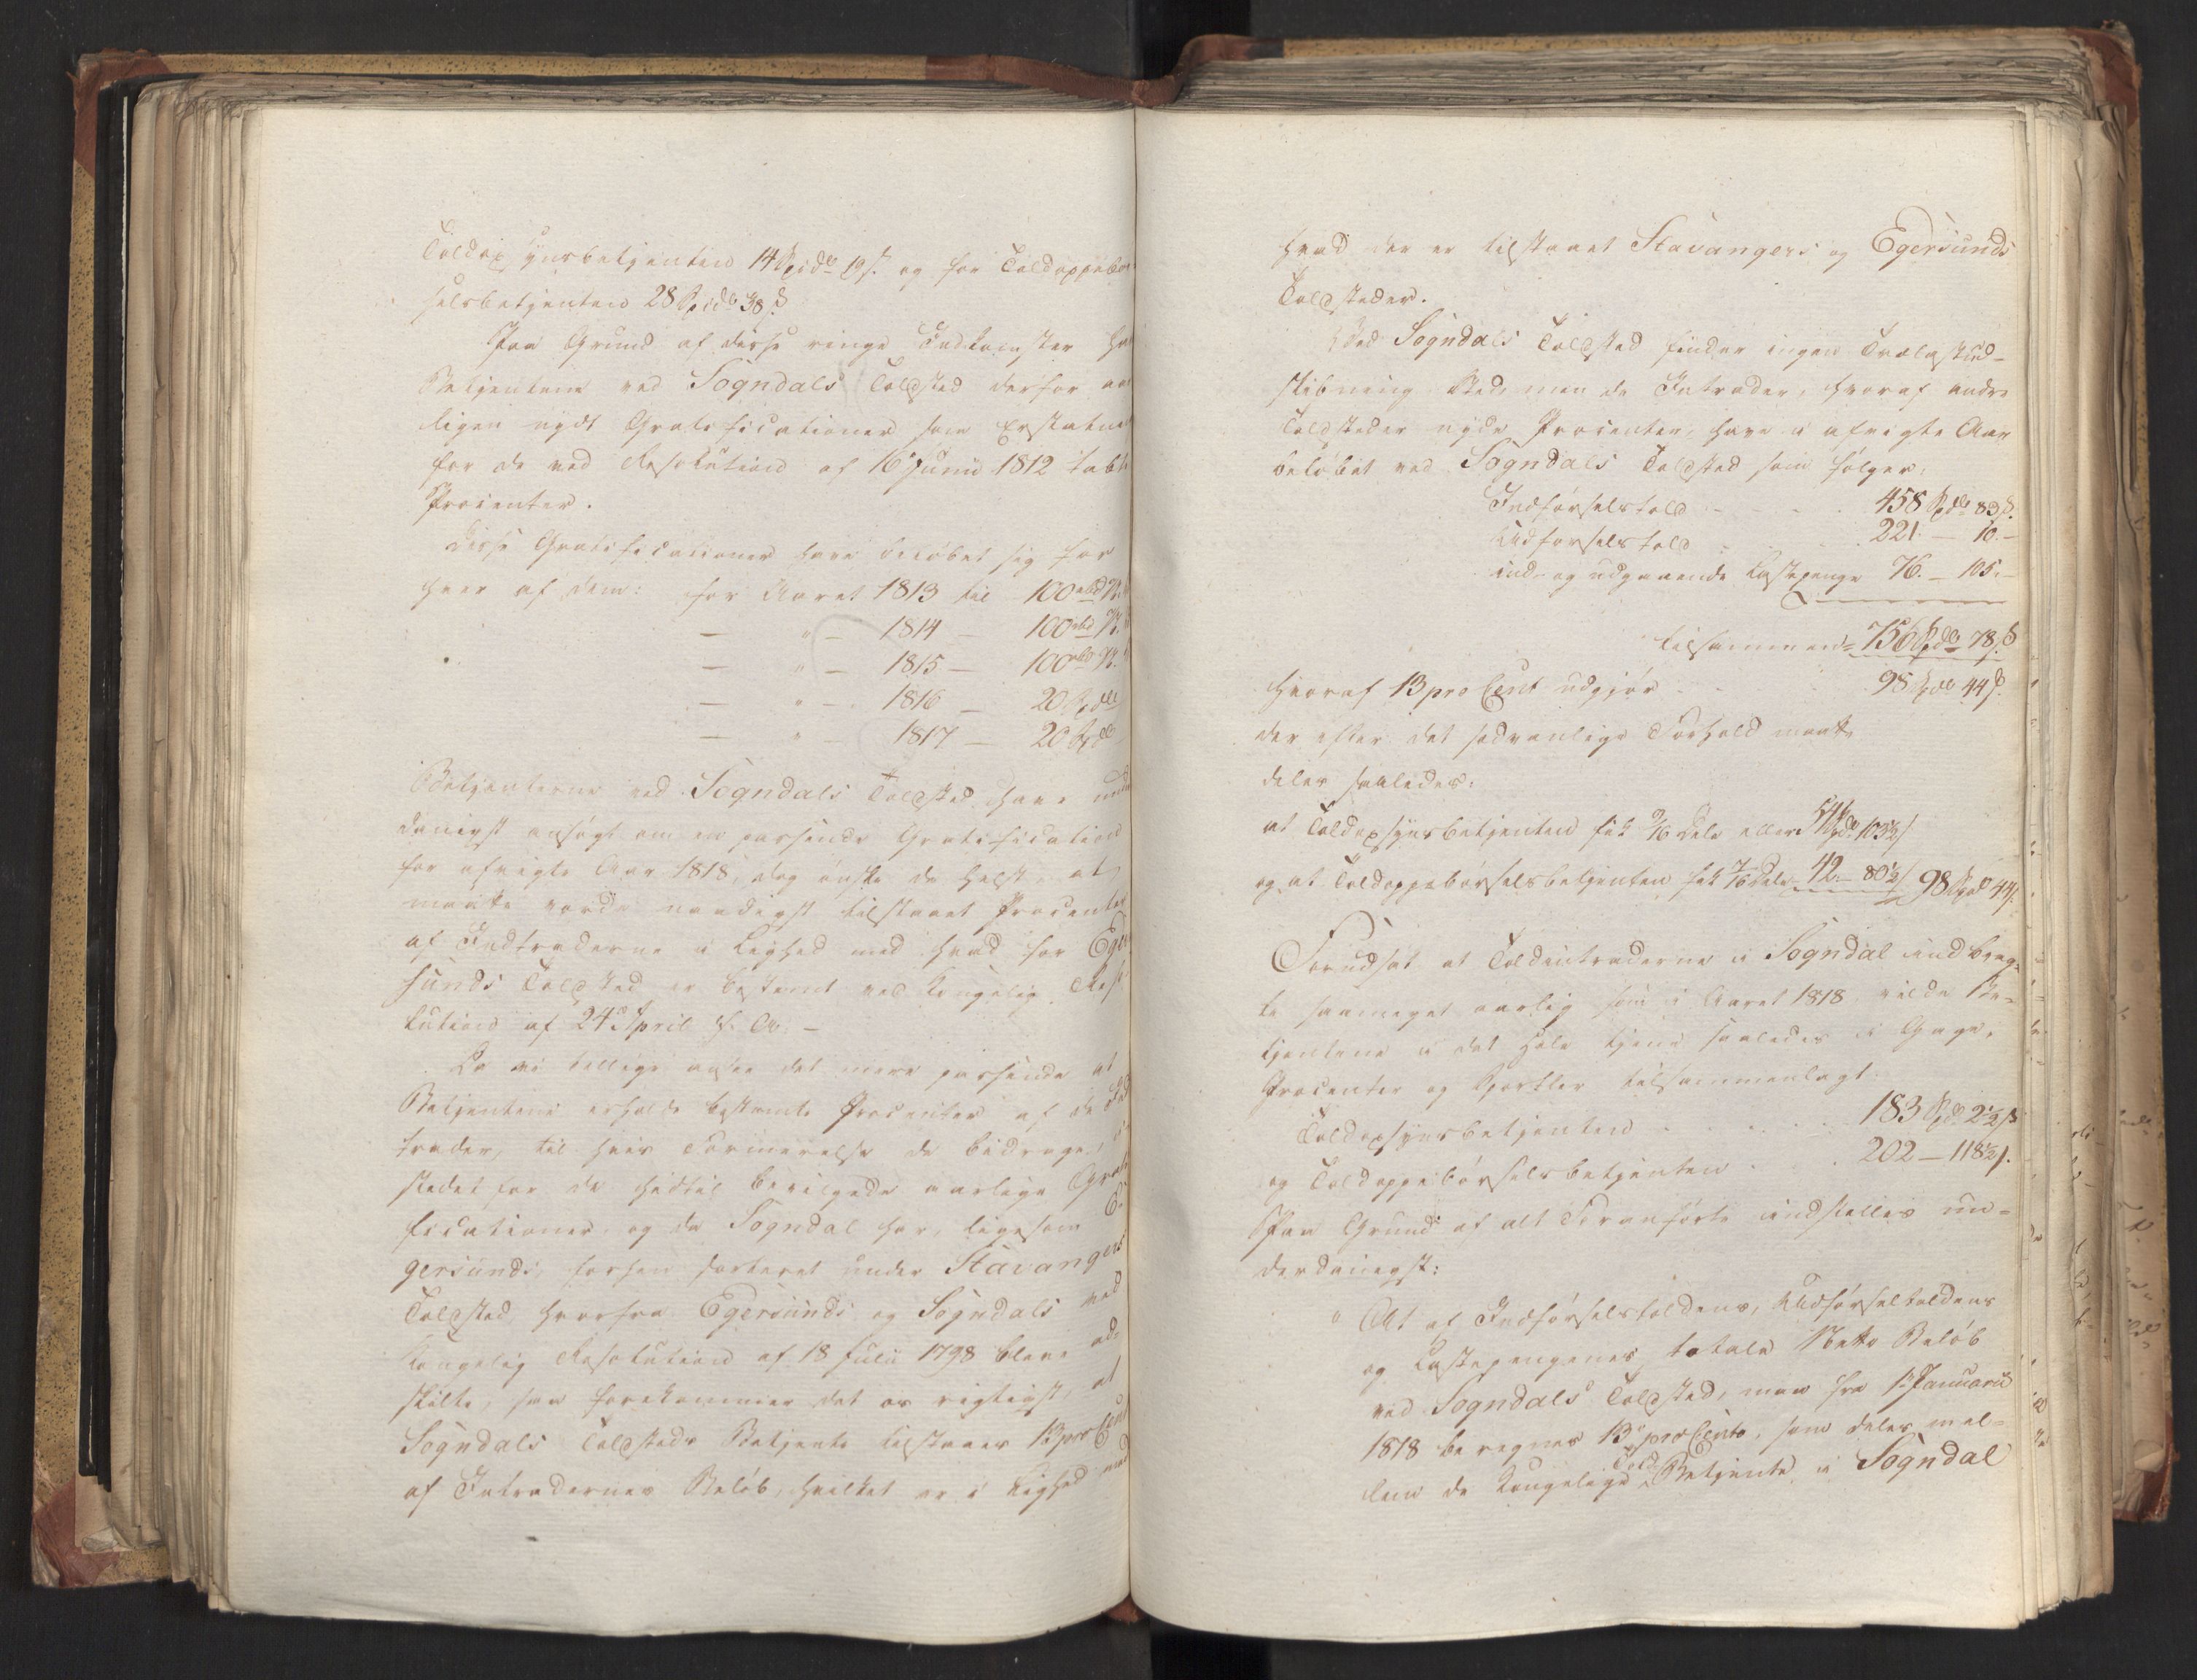 Toldopsynsbetjenten 14 Spidlr 19 s. og for Toldoppebør
selsbetjenten 28 Spidlr 38 s.
Paa Grund af disse ringe Indkomster ha
Betjentene ved Sogndals Toldsted derfor aar
ligen nydt Gratificationer som Erstatning
for de ved Resolution af 16 Junii 1812 tabte
Procenter.
Disse Gratificationer have beløbet sig for
hver af dem: for Aaret 1813 til 100 rbd
— " — 1814 — 100 rbd
— " — 1815 — 100 rbd
— " — 1816 — 20 Spdlr
— " — 1817 — 20 Spdlr
Betjenterne ved Sogndals Toldsted have under
danigst ansøgt om en passende Gratification
for afvigte Aar 1818, dog ønske de helst, at
maatte vorde naadigst tilstaaet Procenter
af Indtraderne i Lighed med hvad for Eger
sunds Toldsted er bestemt ved Kongelig Reso
lution af 24 April f. A. —
Da vi tillige ansee det mere passende at
Betjentene erholde bestemte Procenter af de In
trader, til hvis Formeerelse de bidrage, i
stedet for de hidtil bevilgede aarlige Grati
ficationer, og da Sogndal har, ligesom E
gersund, forhen sorteret under Stavangers
Toldsted, hvorfra Egersunds og Sogndals ved
Kongelig Resolution af 18 Julii 1798 bleve ad
skilte, saa forekommer det os rigtigst, at
Sogndals Toldsteds Betjente tilstaaes 13 pro Cent
af Intradernes Beløb, hvilket er i Lighed med
hvad der er tilstaaet Stavangers og Egersunds
Toldsteder.
Ved Sogndals Toldsted finder ingen Trælastud-
skibning Sted, men de Intrader, hvoraf andre
Toldsteder nyde Procenter, have i afvigte Aar
beløbet ved Sogndals Toldsted som følger:
Indførselstold - - - 458 Spdlr 83 s.
Udførselstold - - 221. — 10. —
ind- og udgaaende Lastepenge 76. — 105. —
tilsammen = 756 Spdlr 78 s.
hvoraf 13 pro Cent udgjør - - 98 Spdlr 44 s.
der efter det sædvanlige Forhold maatte
deles saaledes:
at Toldopsynsbetjenten fik 9/16 Dele eller 55 Spdlr 103½ s
og at Toldoppebørselsbetjenten fik 7/16 Dele 42. — 80½ s 98 Spdlr 44 s.
Forudsat at Toldintraderne i Sogndal indbrag-
te saameget aarlig som i Aaret 1818, vilde Be-
tjentene i det Hele tjene saaledes i Gage,
Procenter og Sportler tilsammenlagt
Toldopsynsbetjenten - - - 183 Spdlr 2½ s
og Toldoppebørselsbetjenten - - 202 — 118½ s.
Paa Grund af alt Foranførte indstilles un-
derdanigst:
" At af Indførselstoldens, Udførseltoldens
og Lastepengenes totale Netto Beløb
ved Sogndals Toldsted, maa fra 1 Januarii
1818 beregnes 13 pro Cento, som deles mel-
lem de Kongelige Told Betjente i Sogndal